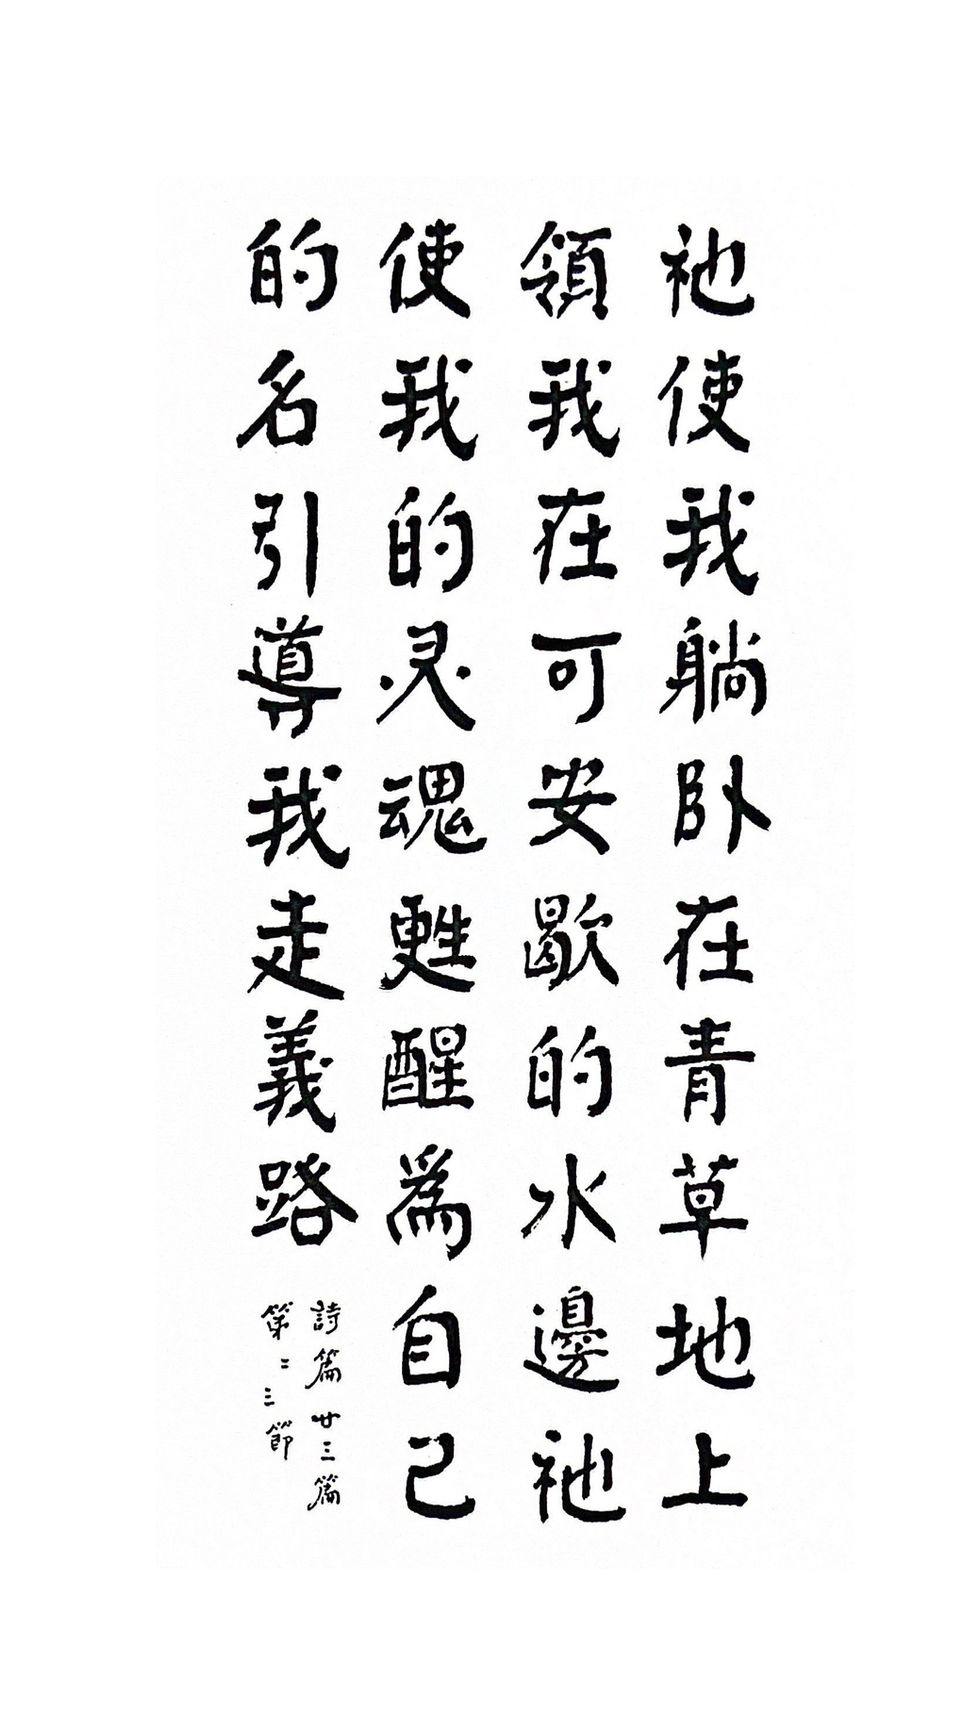 祂使我躺卧在青草地上
領我在可安歇的水邊祂
使我的灵魂甦醒為自己
的名引導我走義路
詩篇廿三篇
第二三節